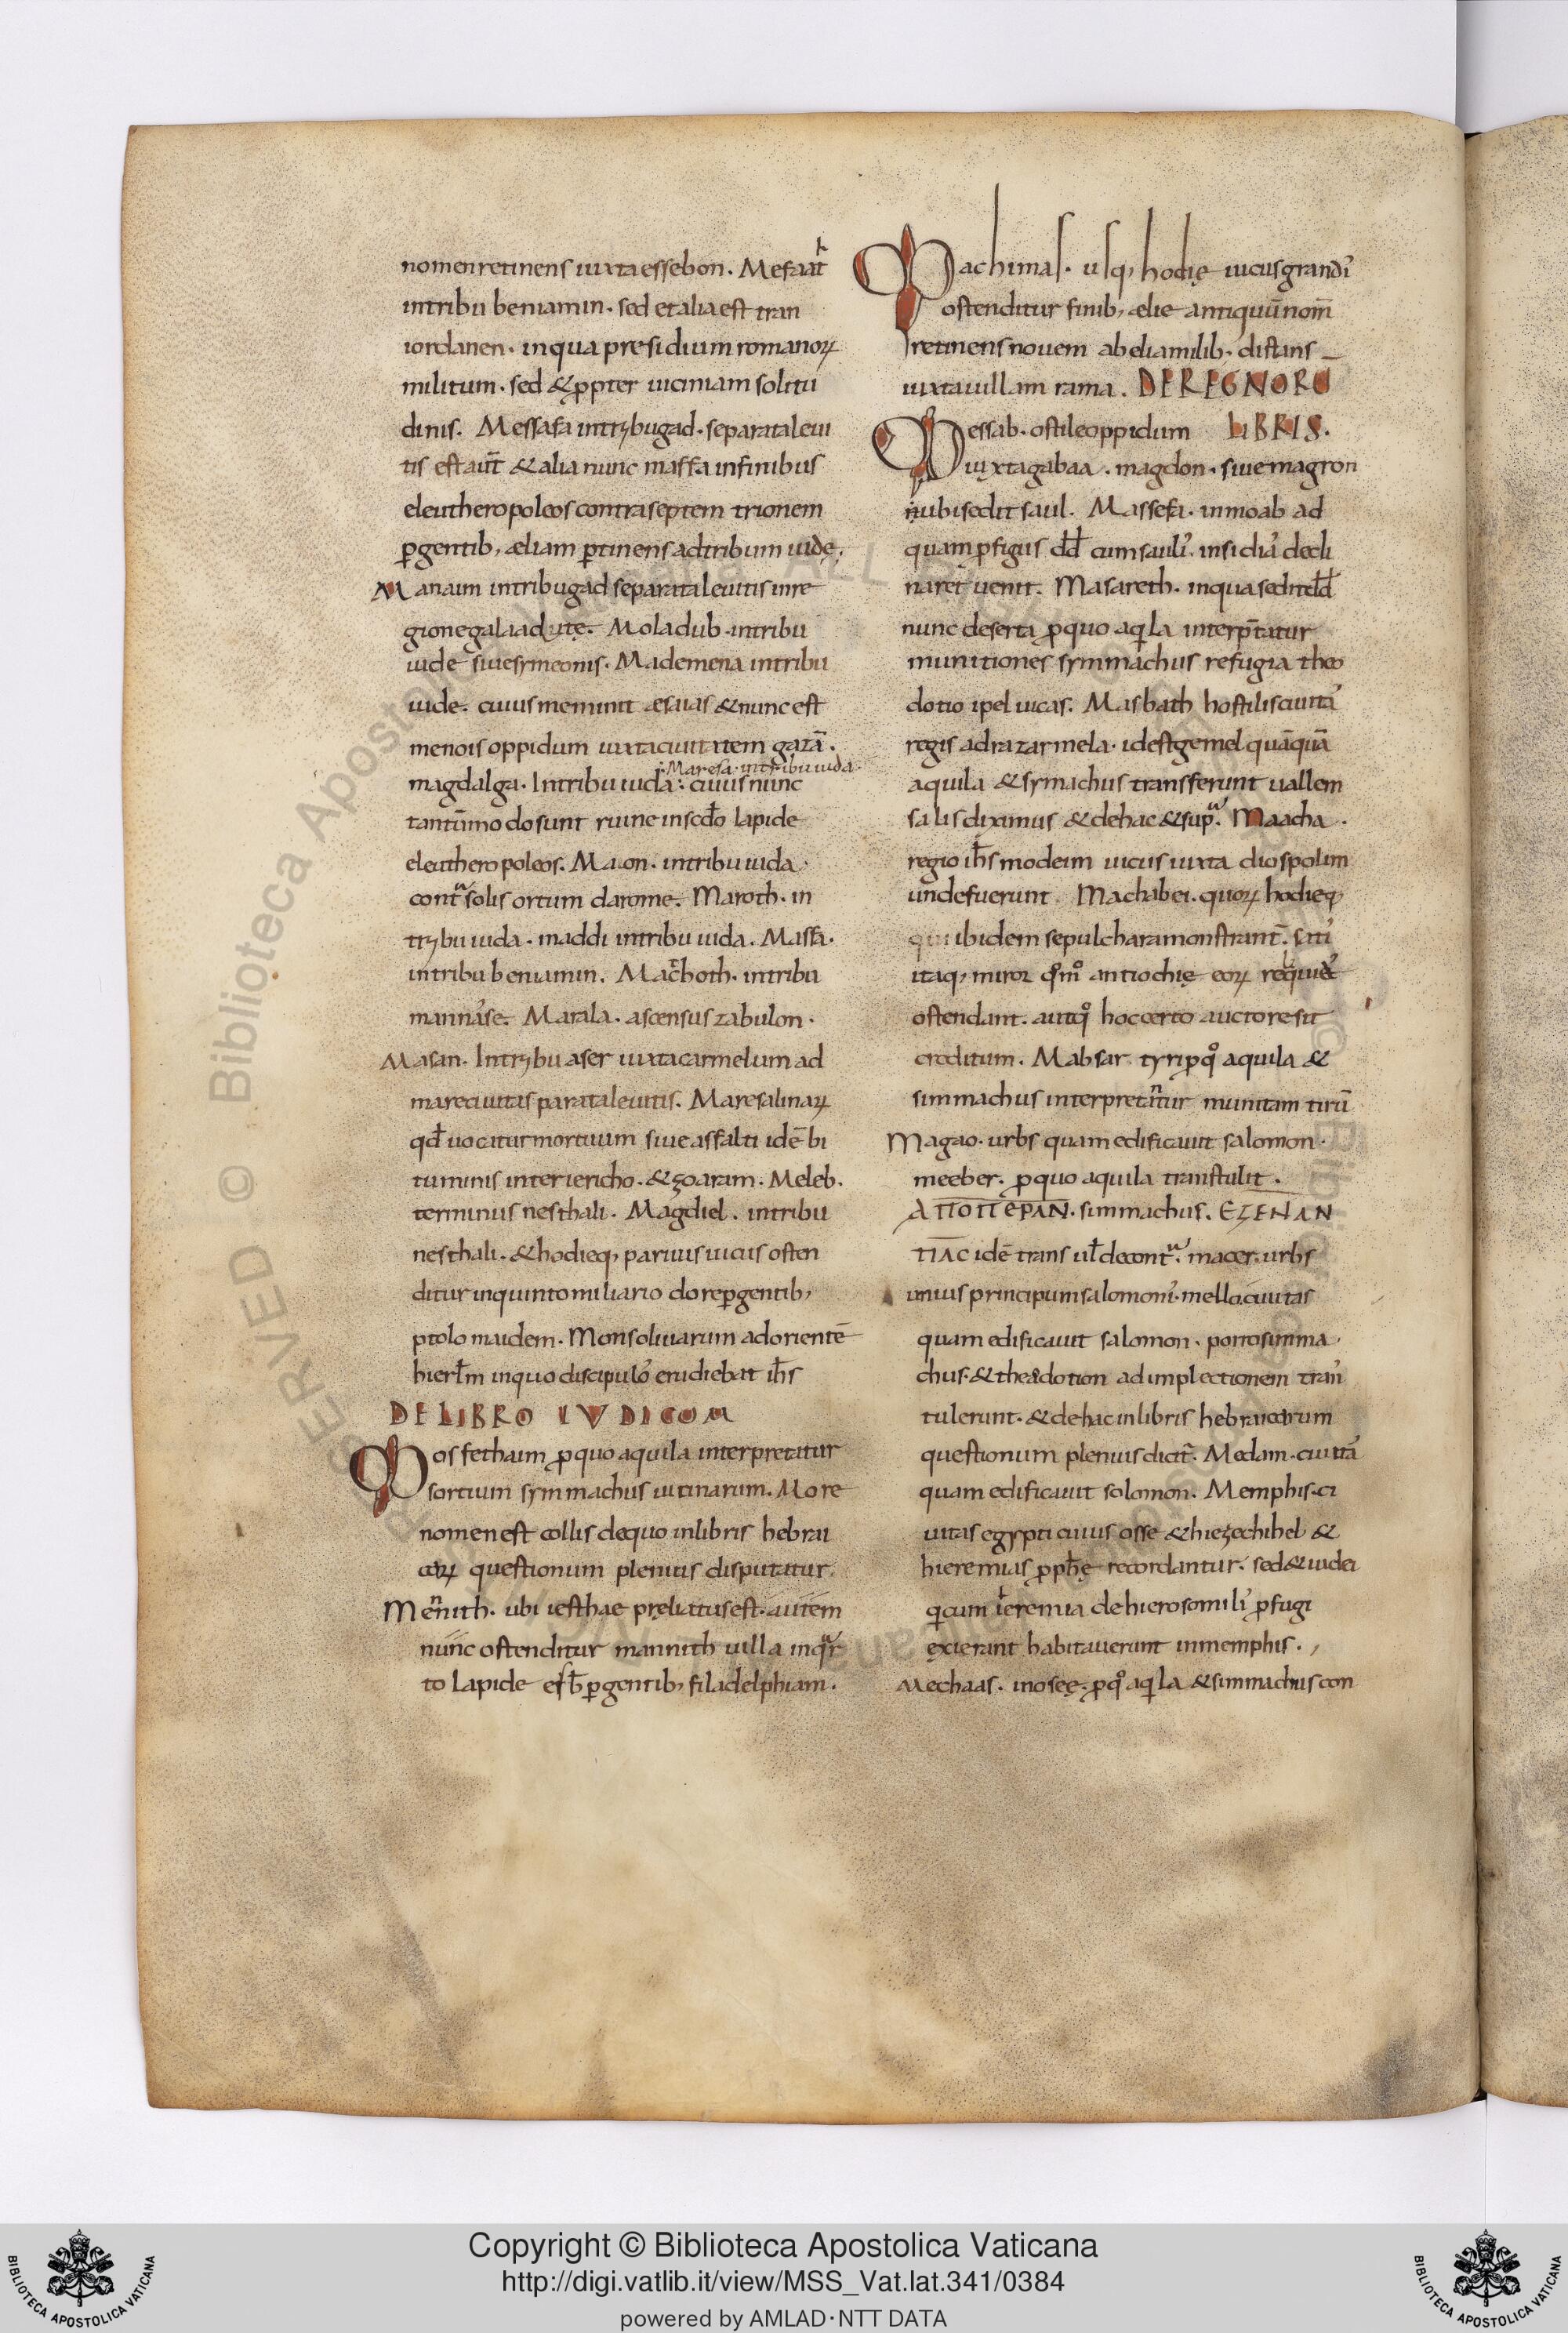 nomen retinens iuxta essebon. Mefaat̄
in tribu beniamin. sed et alia est tran
iordanen. in qua presidium romanoꝝ
militum. sed & ꝓpter uiciniam solitu
dinis. Messafa in tribu gad. separata leui
tis est aut̄ & alia nunc maffa in finibus
eleutheropoleos contra septemtrionem
ꝑgentib; æliam ꝑtinens ad tribum iudę.
Manaim in tribu gad separata leuitis in re
gione galaaditę. Moladub. in tribu
iude siue symeonis. Mademena in tribu
iude. cuius meminit æsaias & nunc est
menois oppidum iuxta ciuitatem gazā.
Maresa. in tribu iuda.
magdalga. In tribu iuda: cuius nunc
tantūmodo sunt ruine in scdo lapide
eleutheropoleos. Maon. in tribu iuda.
contra solis ortum darome. Maroth. in
tribu iuda. maddi in tribu iuda. Massa.
in tribu beniamin. Macthoth. in tribu
mannase. Marala. ascensus zabulon.
Masan. In tribu aser iuxta carmelum ad
mare ciuitas parata leuitis. Mare salinaꝝ
qd̄ uocatur mortuum siue asfalti idē bi
tuminis inter iericho. & zoaram. Meleb.
terminus nepthali. Magdiel. in tribu
nepthali. & hodieq; paruus uicus osten
ditur in quinto miliario doreꝑgentib;
ptolomaidem. Mons oliuarum ad orientē
hierl̄m in quo discipulos erudiebat ih̄s
DE LIBRO IVDICOM
Mosfethaim ꝓ quo aquila interpretatur
sortium symmachus iutinarum. More
nomen est collis de quo in libris hebrai
coꝝ questionum plenius disputatur.
Mennith. ubi iesthae pręliatus est. autem
nunc ostenditur mannith uilla in qr
to lapide esb̄ ꝑgentib; filadelphiam.
Machmas. usq; hodię uicus grandis
ostenditur finib; ælie antiquū nom̄
retinens nouem ab elia milib. distans
iuxta uillam rama. DE REGNORU
Messab. ostile oppidum LIBRIS.
iuxta gabaa. magdon. siue magron
ubi sedit saul. Massefa. in moab ad
quam ꝓfugus dd̄ cum saulis insidias decli
naret uenit. Masareth. in qua sedit dd̄
nunc deserta ꝓ quo aqila interp̄tatur
munitiones symmachus refugia theo
dotio ipel uicas. Masbath hostilis ciuitas
regis adrazar mela. id est gemel quāquā
aquila & symachus transferunt uallem
salis diximus & de hac & supra. Maacha.
regio ih̄s modeim uicus iuxta diospolim
unde fuerunt Machabei. quoꝝ hodieq;
ibidem sepulchara monstrant̄. satis
itaq; miror qm̊ antiochię eoꝝ reliquias
ostendant. aut qo̊ hoc certo auctore sit
creditum. Mabsar tyri ꝓ qo̊ aquila &
simmachus interpretantur munitam tirū
Magao. urbs quam edificauit salomon.
meeber. ꝓ quo aquila transtulit.
ΑΠΟΠΕΡΑΝ. simmachus. ΕΞΕΝΑΝ
ΤΙΑC idē trans ul̄ de contra. macer. urbs
unius principum salomonis. mello. ciuitas
quam edificauit salomon. porro simma
chus. & theodotion adimplectionem trans
tulerunt. & de hac in libris hebraicarum
questionum plenius dicit̄. Medam. ciuitas
quam edificauit solomon. Memphis. ci
uitas egypti cuius osse & hiezechihel &
hieremias ꝓph̄ę recordantur. sed & iudei
qi cum ieremia de hierosomilis ꝓfugi
exierant habitauerunt in memphis.
Mechaas. in osee. ꝓ qo̊ aqila & simmachus con
Copyright © Biblioteca Apostolica Vaticana
http://digi.vatlib.it/view/MSS_Vat.lat.341/0384
powered by AMLAD · NTT DATA